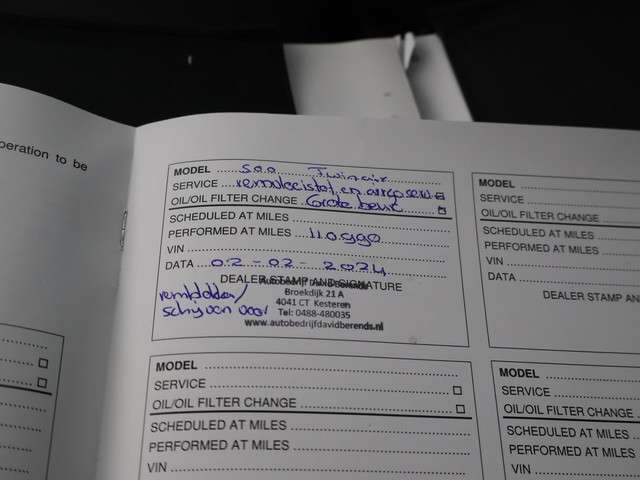 peration to be
MODEL 500 Twinair
SERVICE remvloeistof en airco serv.
OIL/OIL FILTER CHANGE Grote beurt
SCHEDULED AT MILES
PERFORMED AT MILES 110.990
VIN
DATA 02-02-2024
DEALER STAMP AND SIGNATURE
Autobedrijf David Berends
Broekdijk 21 A
4041 CT Kesteren
Tel: 0488-480035
www.autobedrijfdavidberends.nl
remblokken/
schijven voor
MODEL
SERVICE
OIL/OIL FILTER CHANGE
SCHEDULED AT MILES
PERFORMED AT MILES
VIN
DATA
DEALER STAMP AN
MODEL
SERVICE
OIL/OIL FILTER CHANGE
SCHEDULED AT MILES
PERFORMED AT MILES
VIN
MODEL
SERVICE
OIL/OIL FILTER CHANGE
SCHEDULED AT MILES
PERFORMED AT MILES
VIN